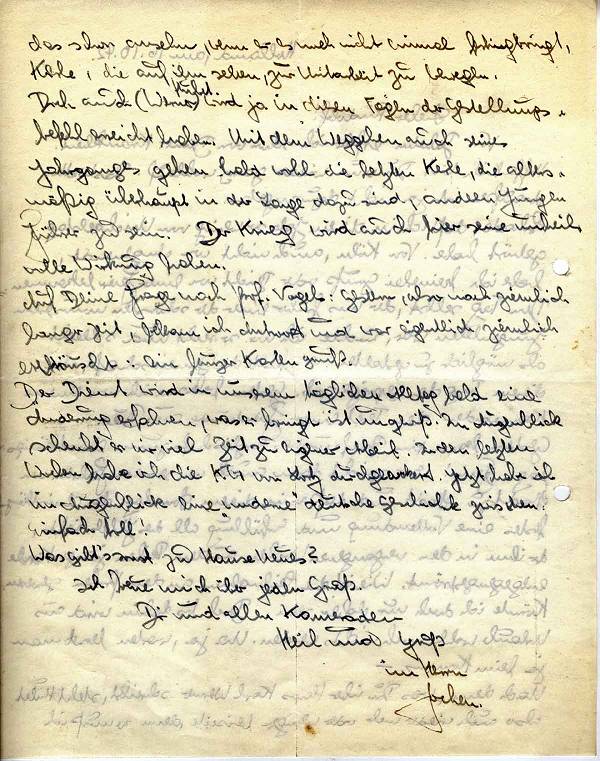 das schon ansehn, wenn er es noch nicht einmal fertigbringt,
Kerle, die auf ihm sehen, zur Mitarbeit zu bewegen.
Dich auch (Werner) wird ja in diesen Tagen der Gestellungs-
befehl erreicht haben. Mit dem Weggehen auch seines
Jahrganges gehen bald wohl die letzten Kerle, die alters-
mäßig überhaupt in der Lage dazu sind, anderen Jungen
Führer zu sein. Der Krieg wird auch hier seine unheil-
volle Wirkung haben.
Auf Deine Frage nach Prof. Vogels: Gestern, also nach ziemlich
langer Zeit, bekam ich Antwort und war eigentlich ziemlich
enttäuscht: ein kurzer Kartengruß.
Der Dienst wird in unserem täglichen bald eine
Änderung erfahren, was er bringt ist ungewiß. Im Augenblick
schenkt er mir viel Zeit zu eigner Arbeit. In den letzten
Wochen habe ich die KG von Lortz durchgeackert. Jetzt habe ich
im Augenblick eine "moderne" deutsche Geschichte zwischen.
Einfach toll!
Was gibt's sonst zu Hause Neues?
Ich freue mich über jeden Gruß.
Dir und allen Kameraden
Heil und Gruß
im Herrn
Jochen.